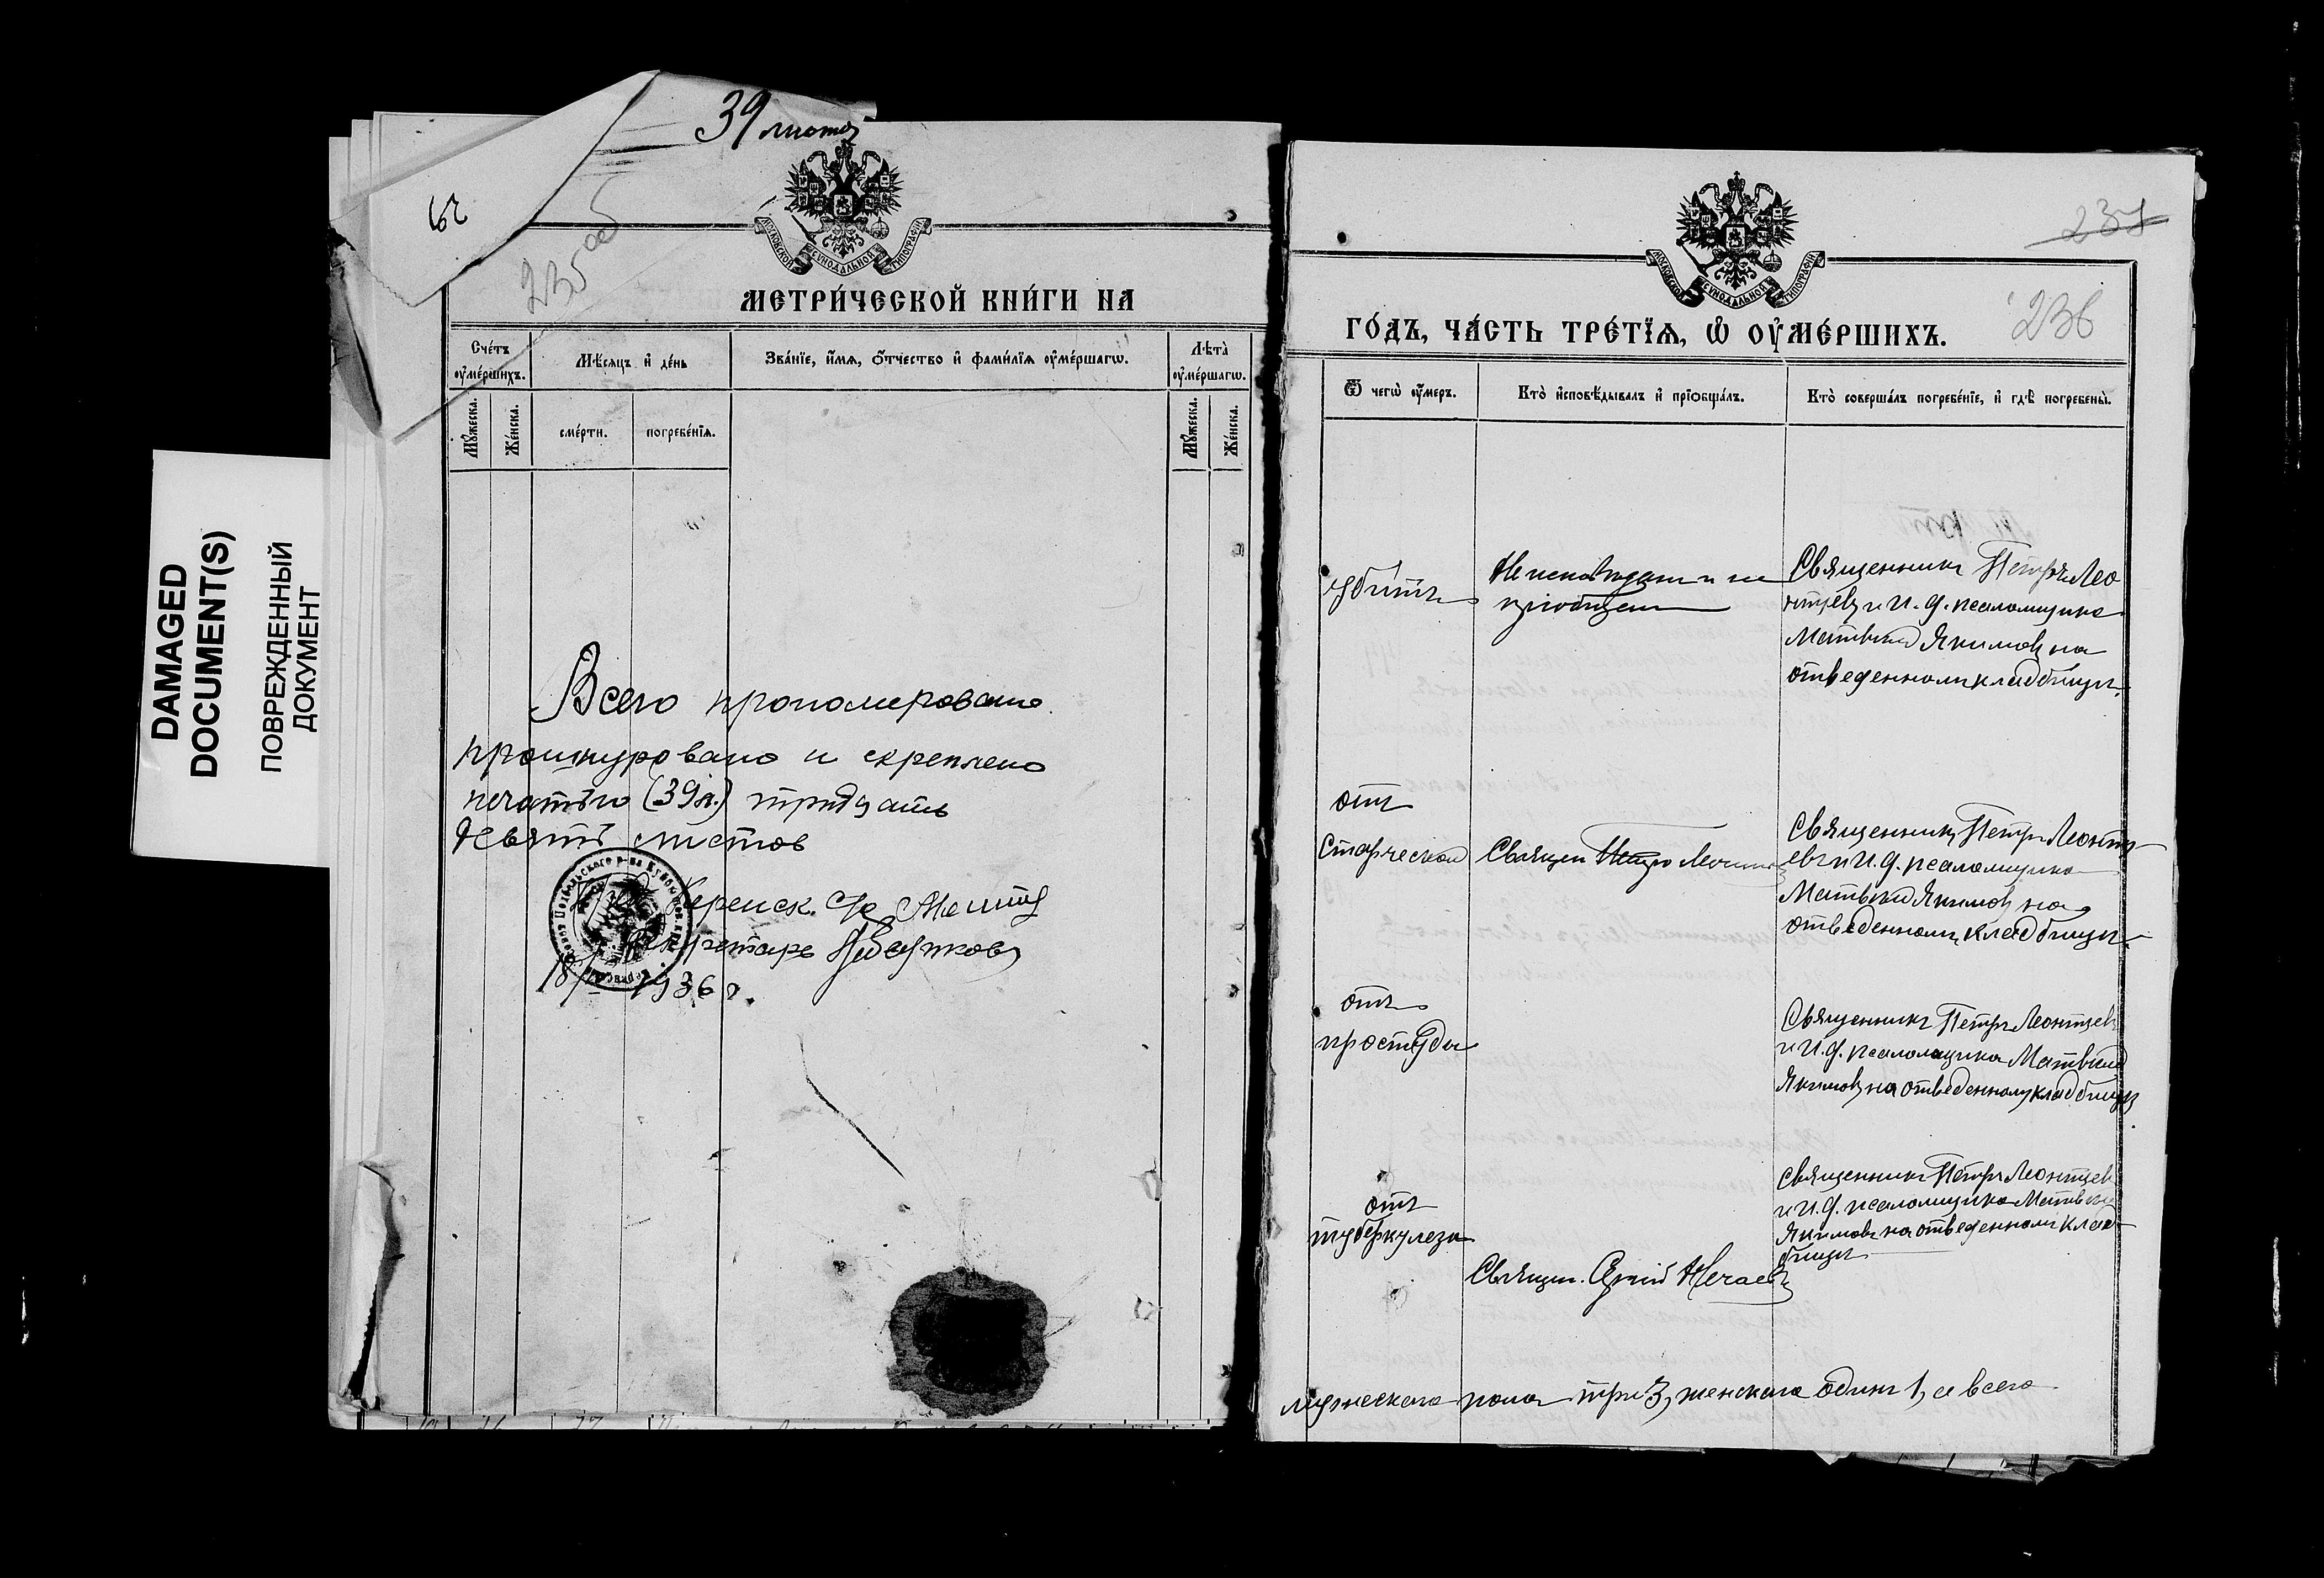 DAMAGED
DOCUMENT(S)
ПОВРЕЖДЕННЫЙ
ДОКУМЕНТ
39 листов
62
235 об
МОСКОВСКОЙ СѴНОДАЛЬНОЙ ТИПОГРАФІИ
МЕТРИ́ЧЕСКОЙ КНИ́ГИ НА
Сче́тъ ᲂу҆ме́ршихъ.
Мѣ́сяцъ и҆ де́нь
Зва́нїе, и҆́мѧ, ѻ҆́тчество и҆ фами́лїѧ ᲂу҆ме́ршагѡ.
Лѣ́та ᲂу҆ме́ршагѡ.
Мꙋ́жеска.
Же́нска.
сме́рти.
погребе́нїѧ.
Мꙋ́жеска.
Же́нска.
Всего прономеровано
прошнуровано и скреплено
печатью (39 л.) тридцать
девять листов
Секретарь
18/ 1936 г.
237
236
МОСКОВСКОЙ СѴНОДАЛЬНОЙ ТИПОГРАФІИ
ГО́ДЪ, ЧА́СТЬ ТРЕ́ТЇѦ, Ѡ҆ ОУ҆МЕ́РШИХЪ.
Ѿ чегѡ̀ ᲂу҆́меръ.
Кто̀ и҆сповѣ́дывалъ и҆ прїѻбща́лъ.
Кто̀ соверша́лъ погребе́нїе, и҆ гдѣ̀ погребены̀.
убитъ
Не исповедан и не
приобщен
Священникъ Петръ Лео
нтьевъ и И. д. псаломщика
Матвей Якимовъ на
отведенномъ кладбищѣ.
отъ
старческой
Священ Петръ
Священникъ Петръ Леонть
евъ и И. д. псаломщика
Матвей Якимовъ на
отведенномъ кладбищѣ
отъ
простуды
Священникъ Петръ Леонтьев
и И. д. псаломщика Матвей
Якимовъ на отведенномъ кладбищѣ
отъ
туберкулеза
Священникъ Петръ Леонтьев
и И. д. псаломщика Матвей
Якимовъ на отведенномъ клад
бищѣ
Священ. Сергій Нечаевъ
мужескаго пола три 3, женскаго одинъ 1, а всего